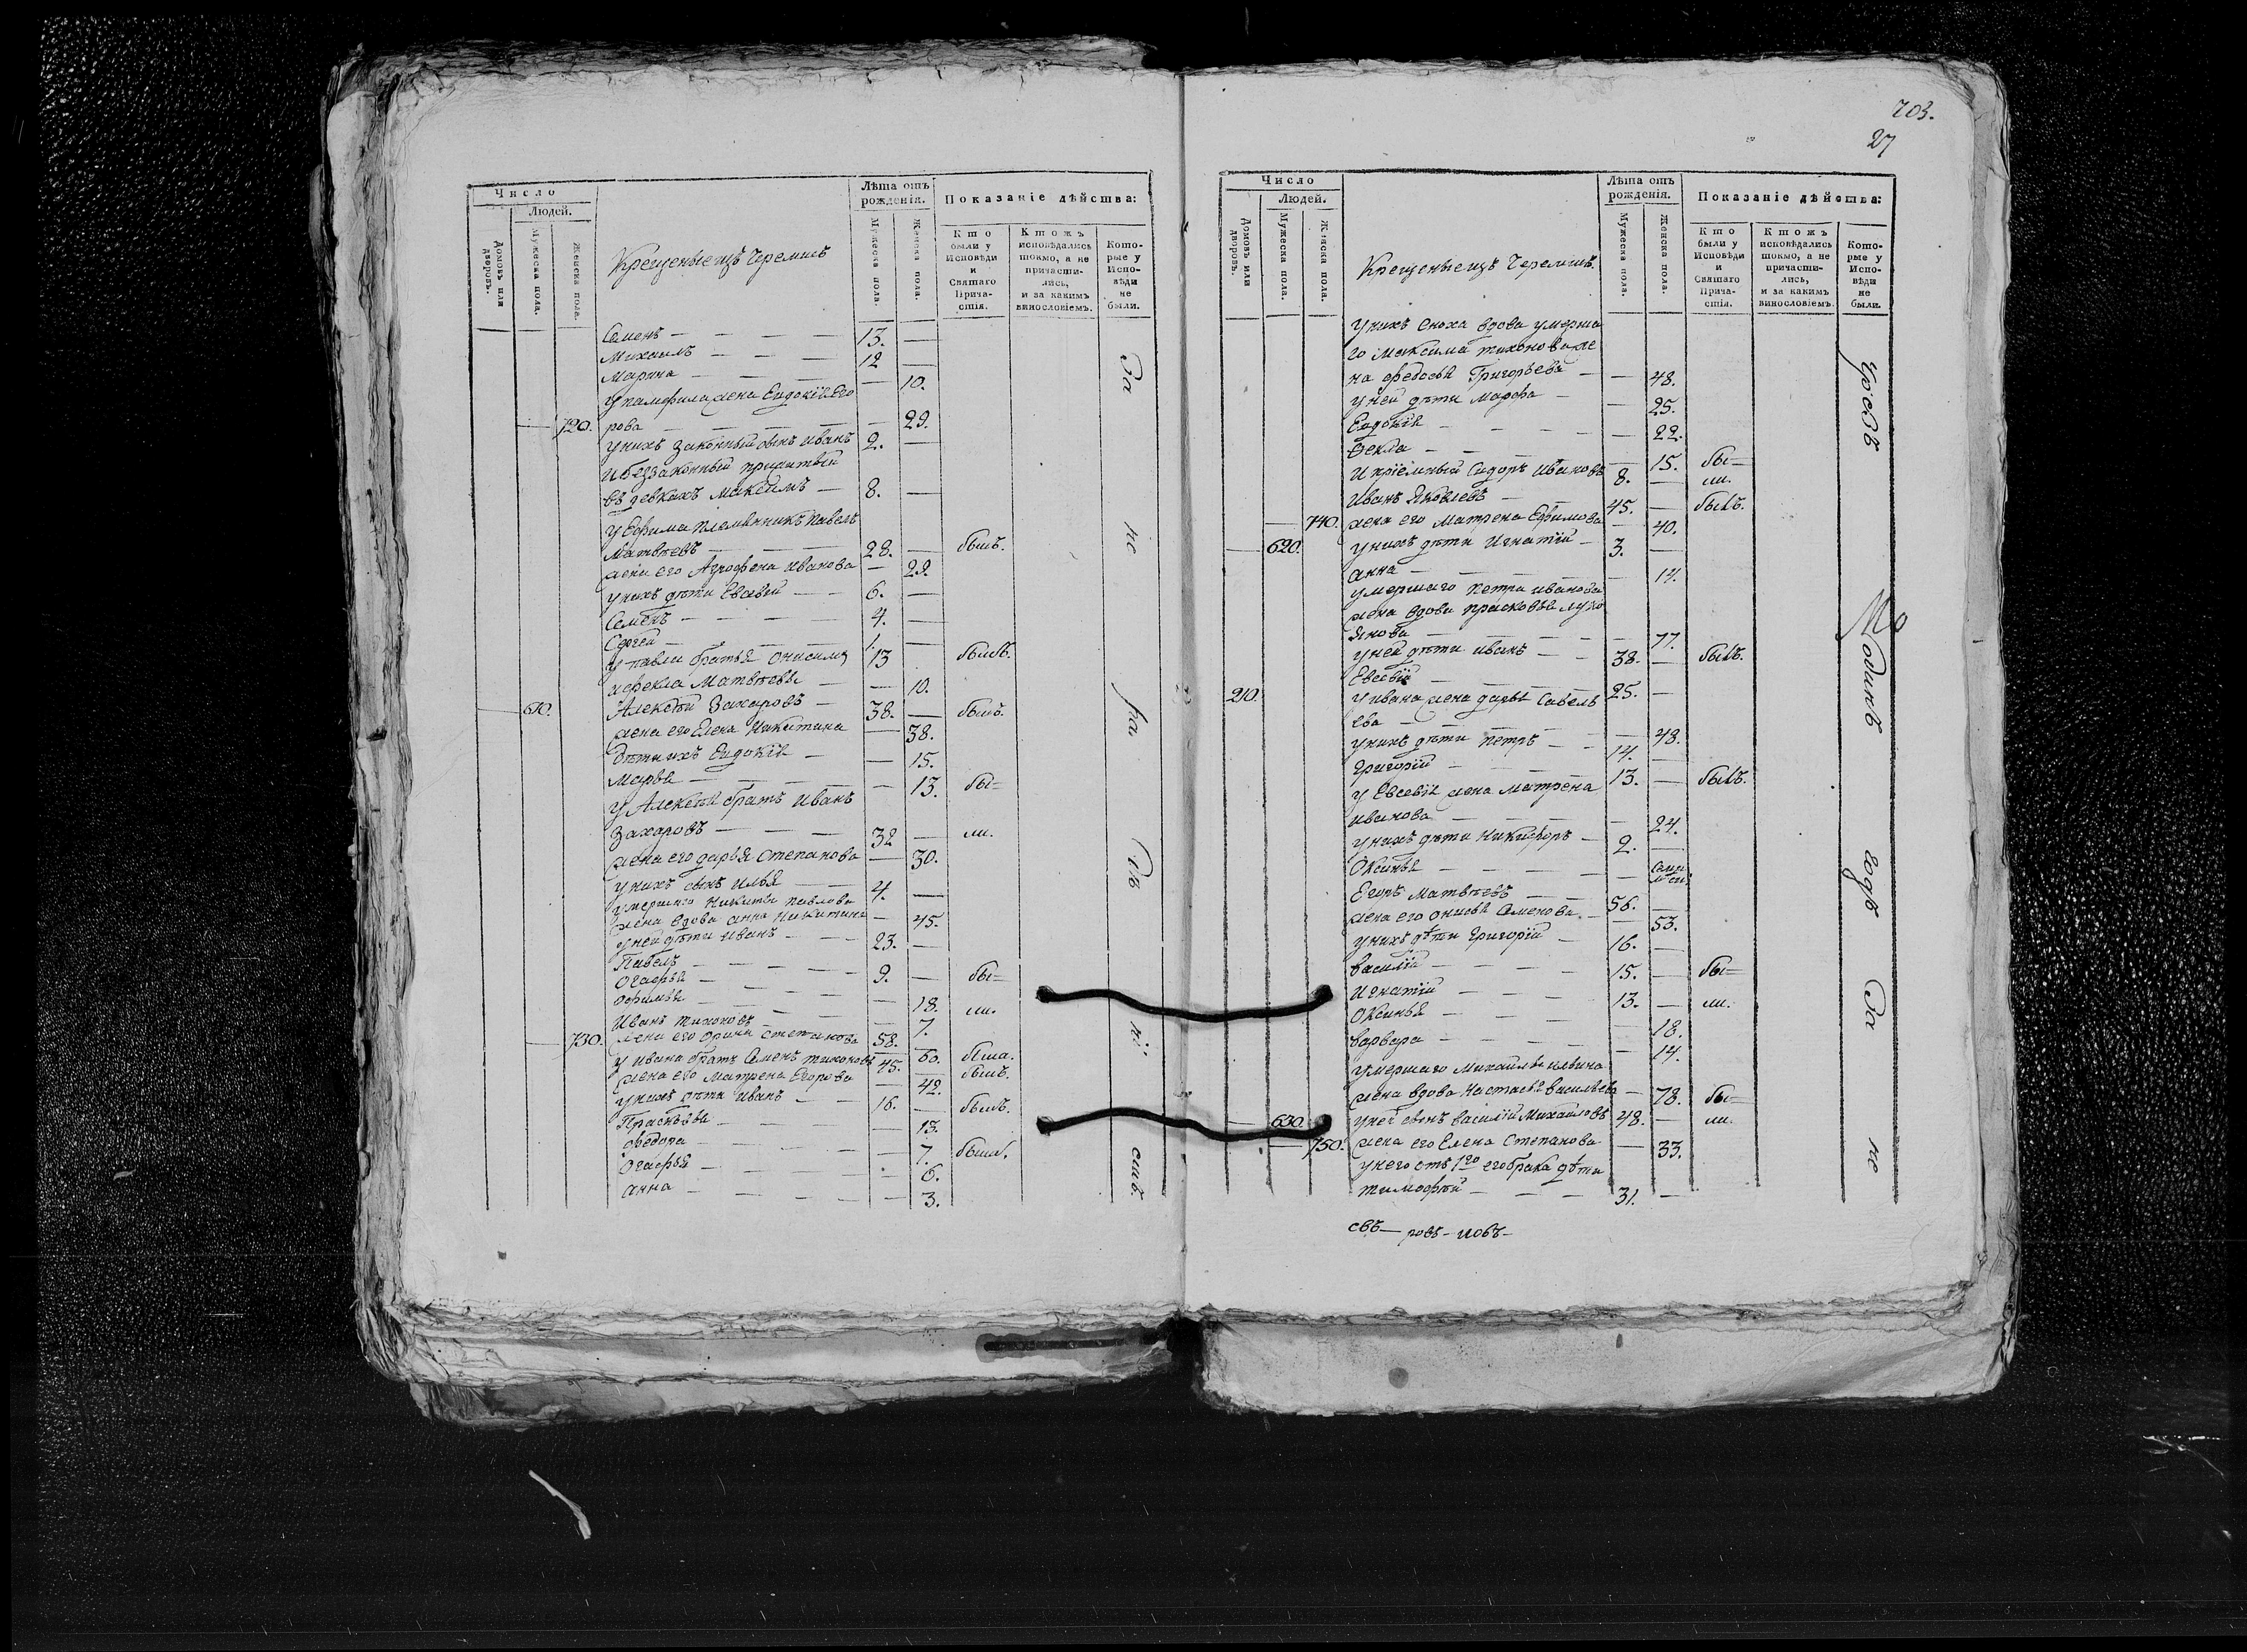 703.
27
Число
Людей.
Домовъ или дворовъ.
Мужеска пола.
Женска пола.
Крещеные изъ Черемисъ
Лѣта отъ рожденія.
Мужеска пола.
Женска пола.
Показаніе дѣйства:
Кто были у Исповѣди и Святаго Причастія.
Ктожъ исповѣдались токмо, а не причастились, и за какимъ винословіемъ.
Которые у Исповѣди не были.
Семенъ — 13. —
Михаилъ — 12 —
Марина — — 10.
у памфила жена Евдокія Его
720. рова — — 29.
у нихъ законный сынъ Иванъ 2. —
и беззаконный прижитый
въ девкахъ Максимъ — 8. —
у Ефима племянникъ Павелъ
Матвѣевъ — 28. — былъ.
жена его Агрофена Иванова — 29.
у нихъ дѣти Евсевей — 6. —
Семенъ — 4. —
Сергей — 1. —
у павла братья Онисимъ 13 былъ.
и фекла Матвѣевы — — 10.
610. Алексѣй Захаровъ — 38. — былъ.
жена его Елена Никитина — 38.
дѣти ихъ Евдокія — — 15.
Марья — — 13. бы=
у Алексѣя братъ Иванъ
Захаровъ — 32 — ли.
жена его дарья Степанова — 30.
у нихъ сынъ Илья — 4. —
умершаго Никиты Павлова
жена вдова анна Никитина — 45.
у ней дѣти Иванъ — 23. —
Павелъ — 9. — бы=
Огафья — — 18. ли.
Офимья — — 7.
Иванъ Тихоновъ — 58. —
730. жена его Орина Степанова — 60. была.
у Ивана братъ Семенъ Тихоновъ 45. — былъ.
жена его Матрена Егорова — 42.
у нихъ дѣти Иванъ — 16. — былъ.
Прасковья — — 13.
Федора — — 7. была.
Огафья — — 6.
анна — — 3.
За
не
ра
дѣ
ні
емъ.
Число
Людей.
Домовъ или дворовъ.
Мужеска пола.
Женска пола.
Крещеные изъ Черемисъ.
Лѣта отъ рожденія.
Мужеска пола.
Женска пола.
Показаніе дѣйства:
Кто были у Исповѣди и Святаго Причастія.
Ктожъ исповѣдались токмо, а не причастились, и за какимъ винословіемъ.
Которые у Исповѣди не были.
у нихъ сноха вдова умерша
го Максима тихонова же
на федосья Григорьева — — 48.
у ней дѣти Марфа — — 25.
Евдокія — — 22.
Фекла — — 15. бы=
и пріемный Сидоръ Ивановъ 8. — ли.
Иванъ Яковлевъ — 45. — былъ.
740. жена его Матрена Ефимова — 40.
620. у нихъ дѣти Игнатій — 3. —
анна — — 14.
умершаго Петра Иванова
жена вдова прасковья
янова — — 77.
у ней дѣти Иванъ — 38. — былъ.
Евсевій — 25. —
210. у Ивана жена дарья Савель
ева — — 48.
у нихъ дѣти петръ — 14. —
Григорій — 13. — былъ.
у Евсевія жена Матрена
Иванова — — 24.
у нихъ дѣти Никифоръ — 2. —
Оксинья —
Егоръ Матвѣевъ — 56. —
жена его онисья Семенова. — 53.
у нихъ дѣти Григорій — 16. —
Василій — 15. — бы=
Игнатій — 13. — ли.
Оксинья — — 18.
варвара — — 14.
умершаго Михаилы Ильина
жена вдова Настасья васильева — 78. бы=
630. у ней сынъ василій Михаиловъ 48. — ли.
750. жена его Елена Степанова — 33.
у него отъ 1го его брака дѣти
тимофѣй — 31. —
годъ
не